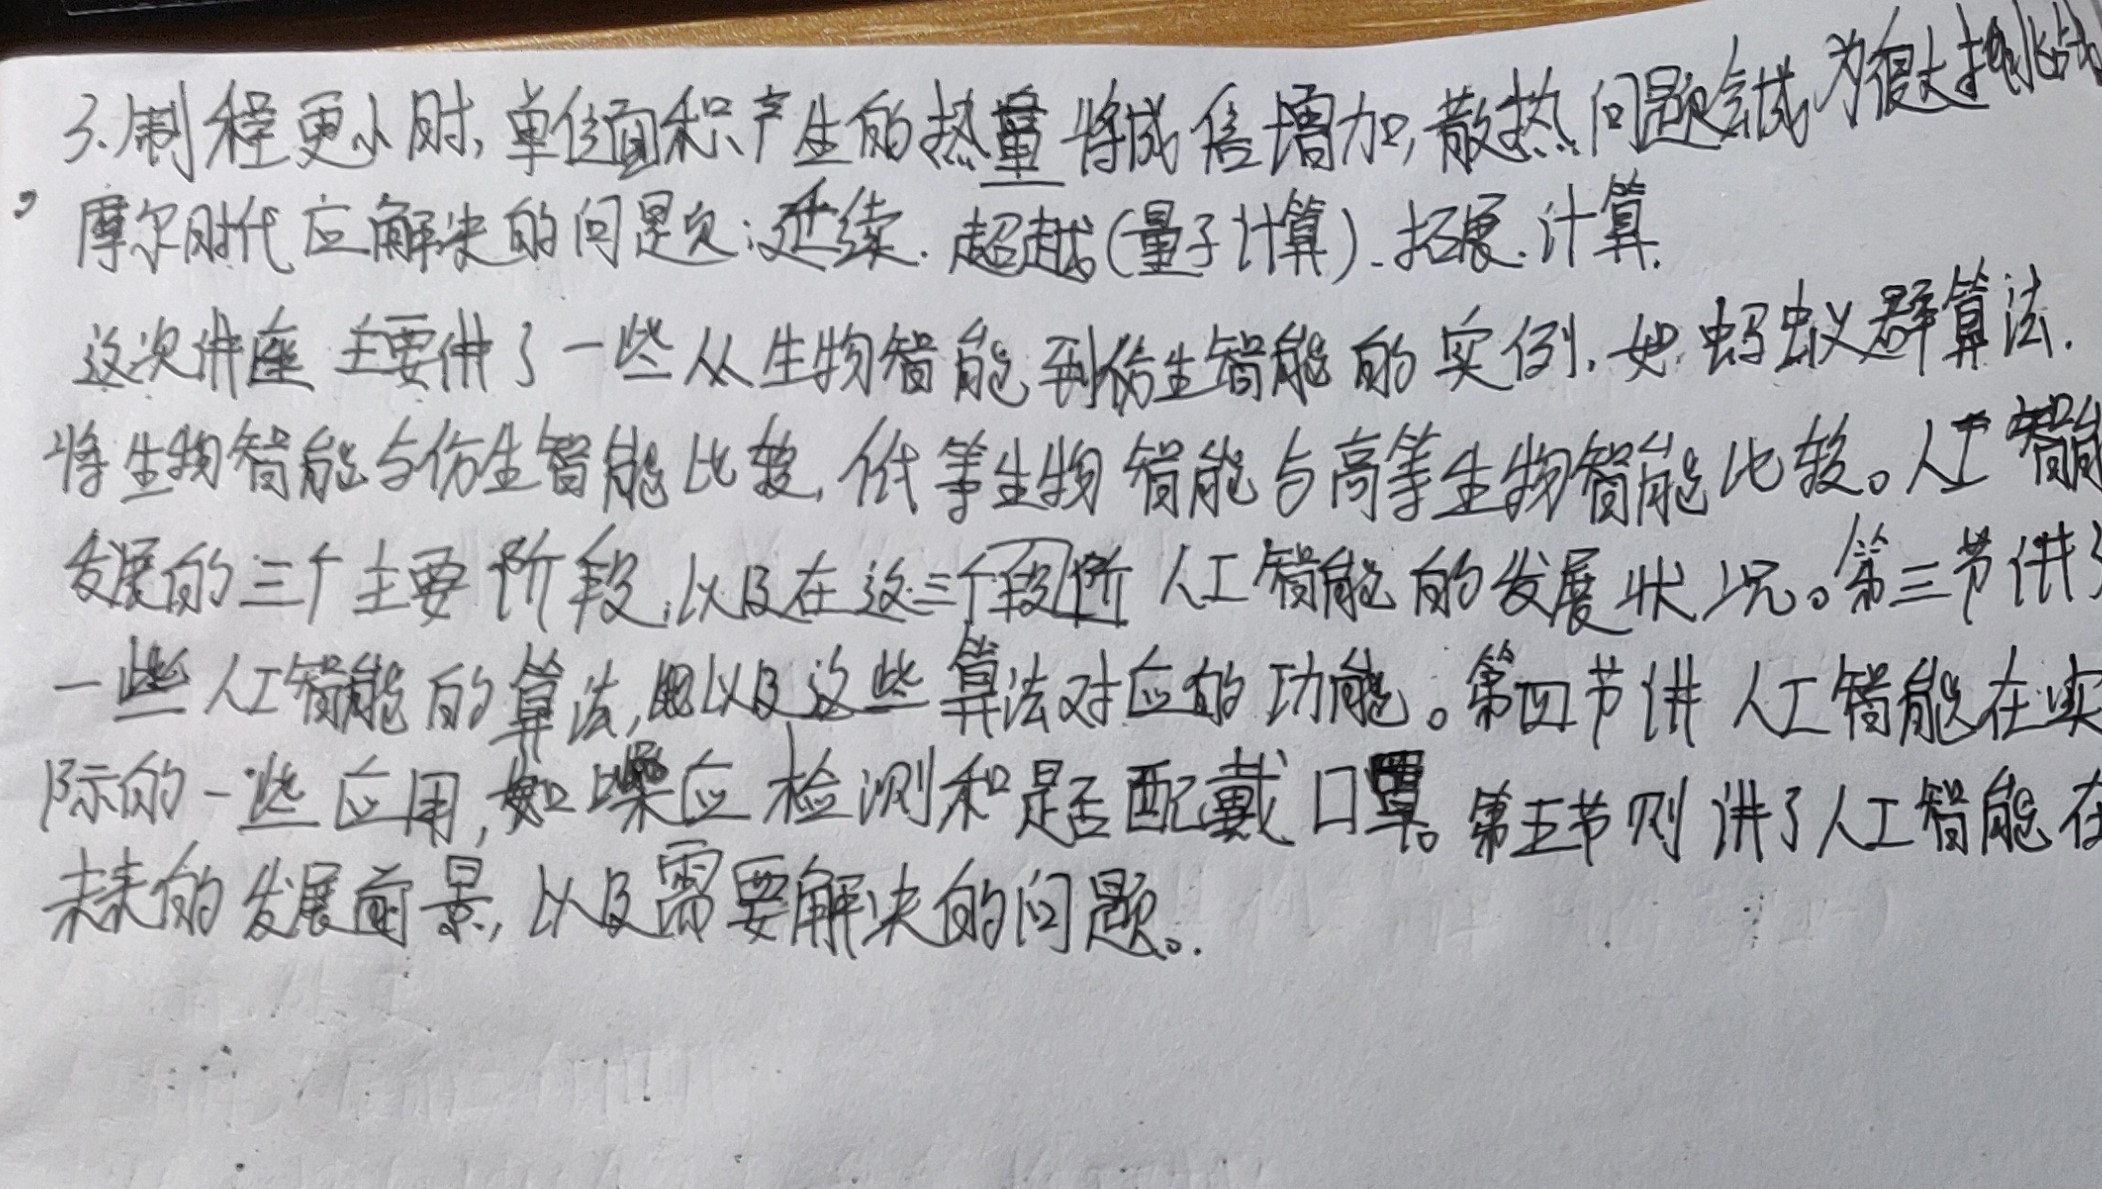 3.制程更小时,单位面积产生的热量将成倍增加,散热问题会成为很大挑战
,摩尔时代应解决的问题:延续.超越(量子计算).拓展.计算.
这次讲座主要讲了一些从生物智能到仿生智能的实例.如蚂蚁群算法.
将生物智能与仿生智能比较,低等生物智能与高等生物智能比较。人工智能
发展的三个主要阶段,以及在这三个段阶人工智能的发展状况。第三节讲了
一些人工智能的算法,以及这些算法对应的功能。第四节讲人工智能在实
际的一些应用,如噪应检测和是否配戴口罩。第五节则讲了人工智能在
未来的发展前景,以及需要解决的问题。.